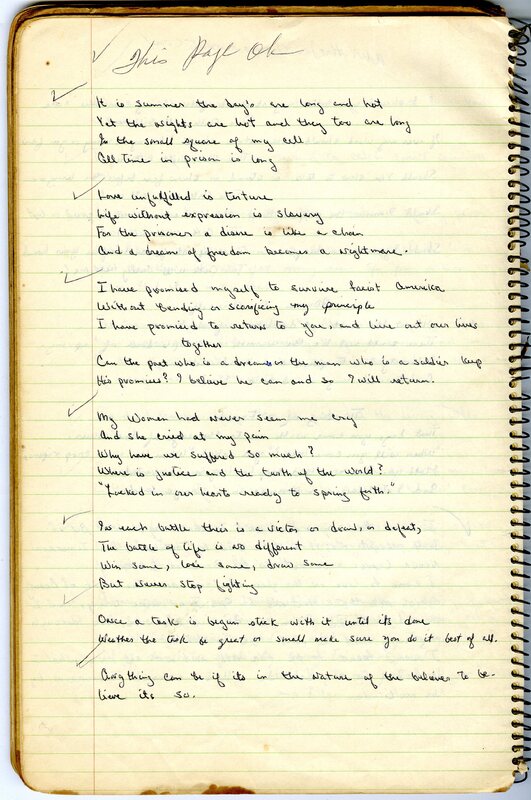 This Page Ok
It is summer the day's are long and hot
Yet the nights are hot and they too are long
In the small square of my cell
All time in prison is long
Love unfulfilled is torture
Life without expression is slavery
For the prisoner a disire is like a chain
And a dream of freedom becomes a nightmare.
I have promised myself to survive facist America
Without bending or sacrificing my principle
I have promised to return to you, and live out our lives
together
Can the poet who is a dreamer or the man who is a soldier keep
His promises? I believe he can and so I will return.
My Women had never seen me cry
And she cried at my pain
Why have we suffered so much?
Where is justice and the truth of the world?
"Locked in our hearts ready to spring forth."
In each battle their is a victor or draw, or defeat,
The battle of life is no different
Win some, lose some, draw some
But never stop fighting
Once a task is begun stick with it until its done
Weather the task be great or small make sure you do it best of all.
Anything can be if its in the nature of the believer to be-
lieve its so.